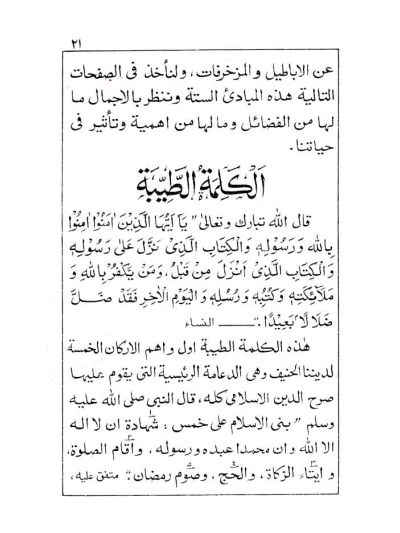 ٢١
عن الاباطيل والمزخرفات، ولنأخذ فى الصفحات
التالية هذه المبادئ الستة وننظر بالاجمال ما
لها من الفضائل وما لها من اهمية وتأثير فى
حياتنا.
اَلْكَلِمَةُ الطَّيِّبَةُ
قال الله تبارك وتعالىٰ "يَا اَيُّهَا الَّذِيْنَ اٰمَنُوْا اٰمِنُوْا
بِاللهِ وَرَسُوْلِهٖ وَالْكِتَابِ الَّذِىْ نَزَّلَ عَلٰى رَسُوْلِهٖ
وَالْكِتَابِ الَّذِىْ اَنْزَلَ مِنْ قَبْلُ، وَمَنْ يَّكْفُرْ بِاللهِ وَ
مَلَآئِكَتِهٖ وَكُتُبِهٖ وَرُسُلِهٖ وَالْيَوْمِ الْاٰخِرِ فَقَدْ ضَلَّ
ضَلَالًا بَعِيْدًا." ــــ النساء
هذه الكلمة الطيبة اول واهم الاركان الخمسة
لديننا الحنيف وهى الدعامة الرئيسية التى يقوم عليها
صرح الدين الاسلامى كله، قال النبى صلى الله عليه
وسلم "بنى الاسلام على خمس: شهادة ان لا اله
الا الله وان محمدا عبده ورسوله، وأقام الصلوة،
و ايتاء الزكاة، والحج، وصوم رمضان." متفق عليه،